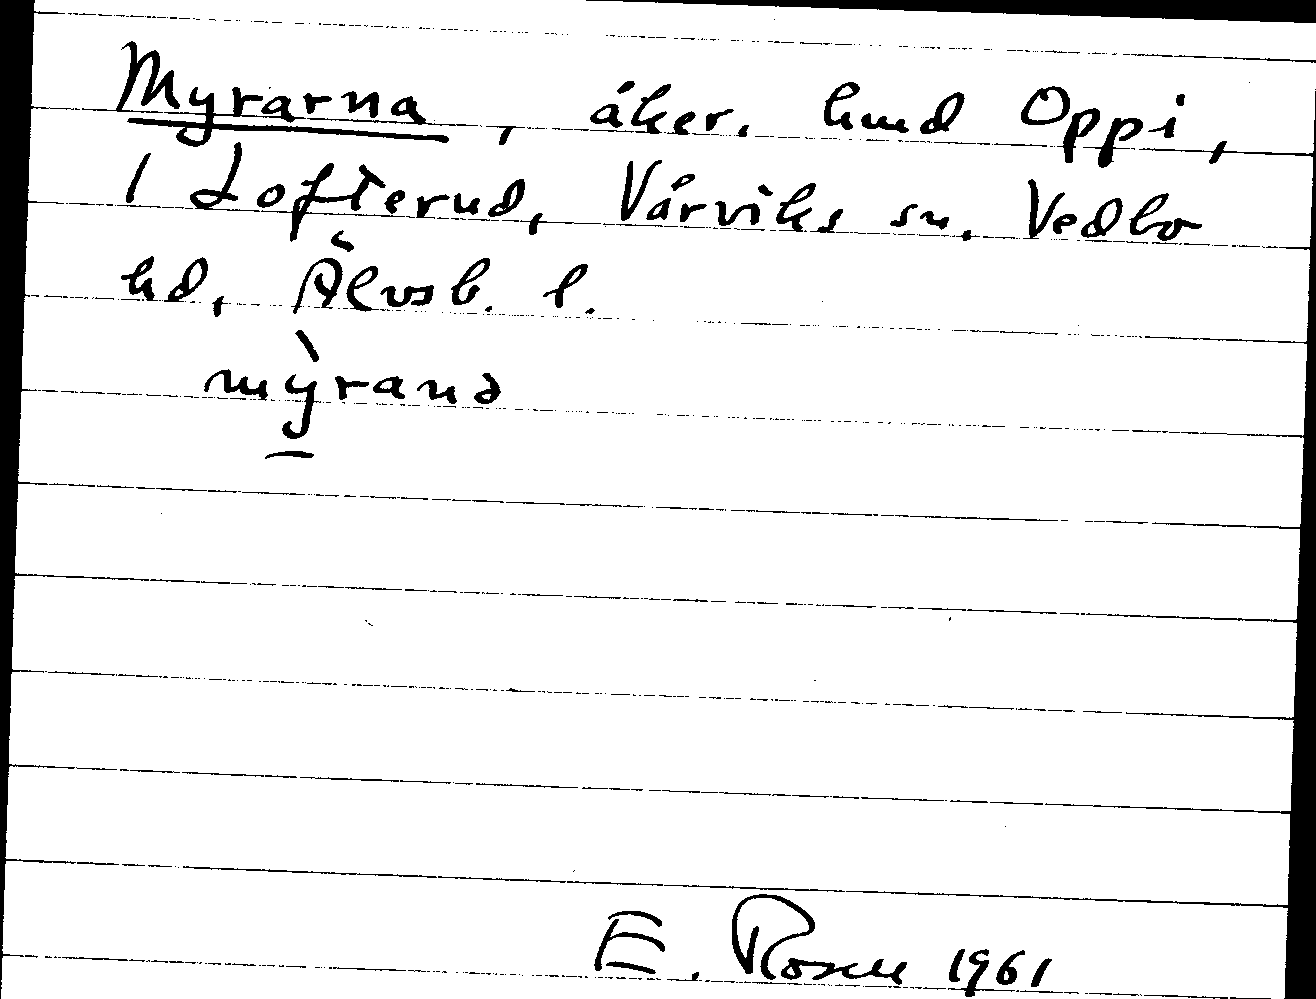 Myrarna, åker. hmd Oppi,
1 Lofterud, Vårviks sn. Vedbo
hd, Älvsb. l.
mỳranə
E. Rosell 1961